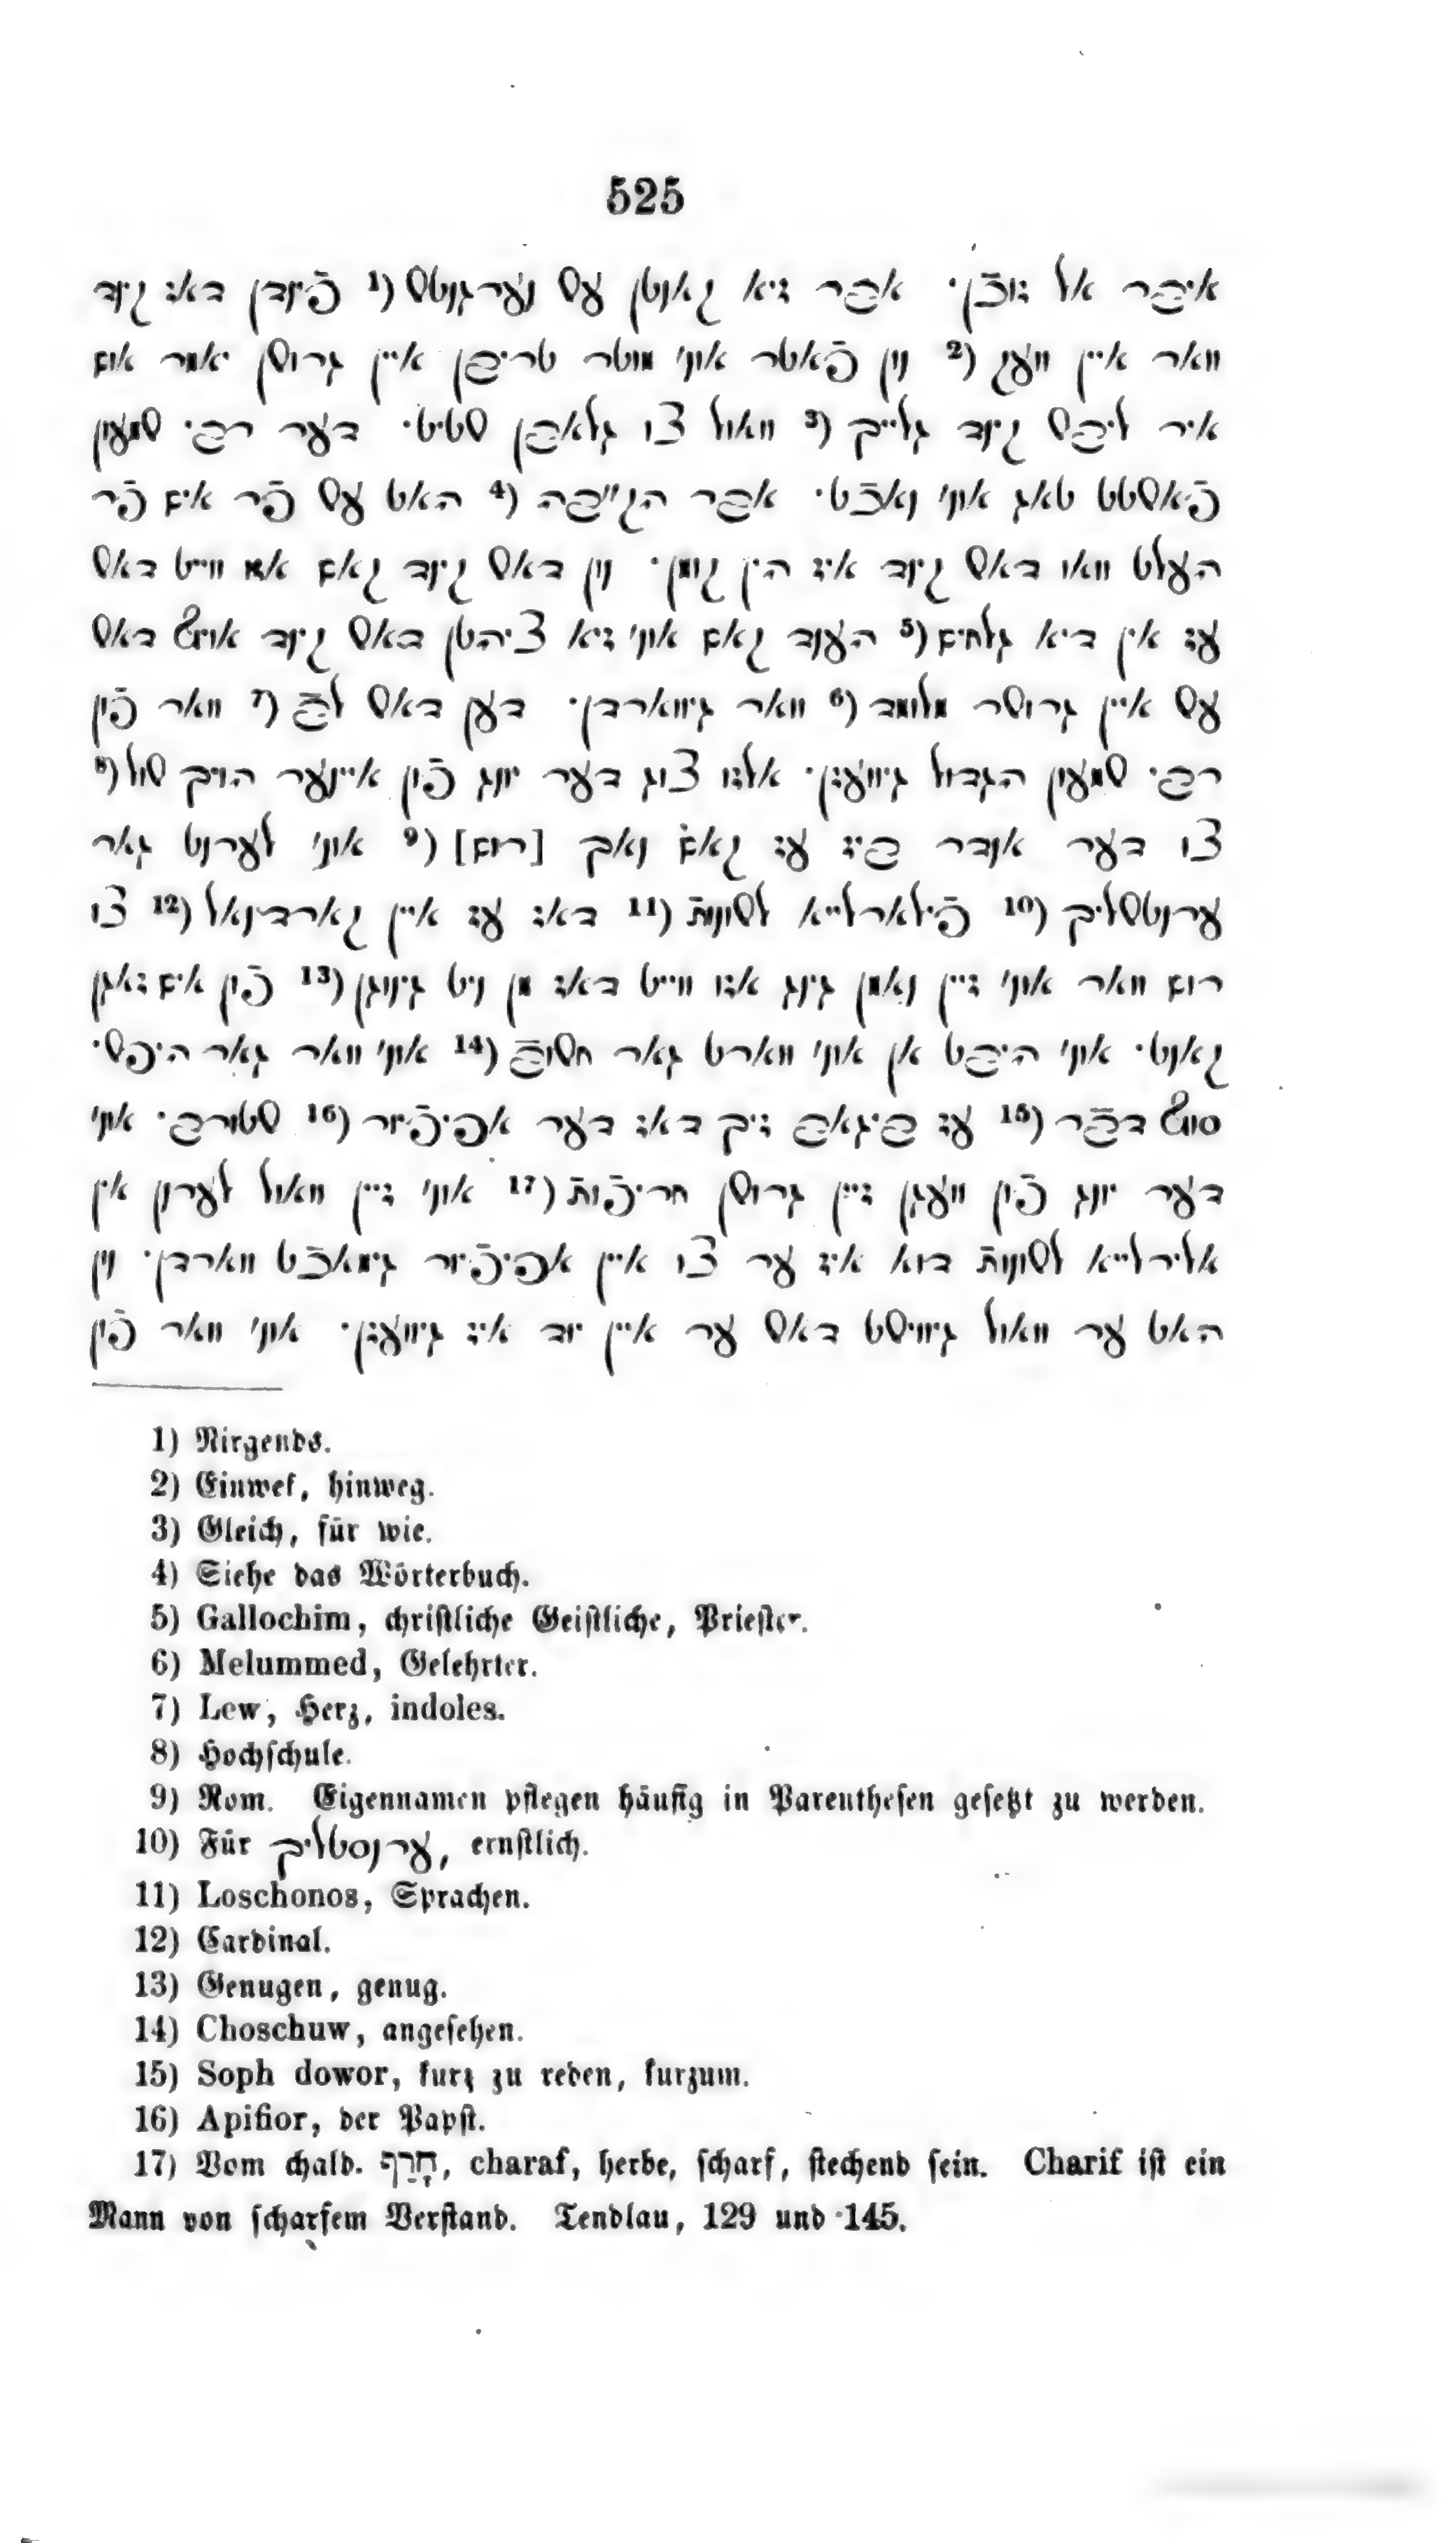 525
איבר אל זוכֿן. אבר זיא קאנטן עס נערגנטס (1 פֿינדן דאז קינד
וואר איין וועק (2 נון פֿאטר אונ' מוטר טריבן איין גרושן יאמר אום
איר ליבס קינד גלייך (3 וואול צו גלאבן שטיט. דער רבי שמעון
פֿאסטט טאג אונ' נאכֿט. אבר הק"בה (4 האט עס פֿר אים פֿר
העלט וואו דאס קינד איז הין קומן. נון דאס קינד קאם אזו ווייט דאס
עז אין דיא גלחים (5 הענד קאם אונ' זיא ציהטן דאס קינד אויף דאס
עס איין גרושר מלומד (6 וואר גיווארדן. דען דאס לבֿ (7 וואר פֿון
רבי שמעון הגדול גיוועזן. אלזו צוג דער יונג פֿון איינער הויך שול (8
צו דער אנדר ביז עז קאם נאך [רום] (9 אונ' לערנט גאר
ערנטשליך (10 פֿילארלייא לשונות (11 דאז עז איין קארדינאל (12 צו
רום וואר אונ' זיין נאמן גינג אזו ווייט דאז מן ניט גינוגן (13 פֿון אים זאגן
קאנט. אונ' היבט אן אונ' ווארט גאר חשובֿ (14 אונ' וואר גאר היפש.
סוף דבֿר (15 עז ביגאב זיך דאז דער אפיפֿיור (16 שטורב. אונ'
דער יונג פֿון וועגן זיין גרושן חריפֿות (17 אונ' זיין וואול לערנן אין
אלירלייא לשונות דוא איז ער צו איין אפיפֿיור גימאכֿט ווארדן. נון
האט ער וואול גיוויסט דאס ער איין יוד איז גיוועזן. אונ' וואר פֿון
1) Nirgends.
2) Einwek, hinweg.
3) Gleich, für wie.
4) Siehe das Wörterbuch.
5) Gallochim, christliche Geistliche, Priester.
6) Melummed, Gelehrter.
7) Lew, Herz, indoles.
8) Hochschule.
9) Rom. Eigennamen pflegen häufig in Parenthesen gesetzt zu werden.
10) Für ערנסטליך, ernstlich.
11) Loschonos, Sprachen.
12) Cardinal.
13) Genugen, genug.
14) Choschuw, angesehen.
15) Soph dowor, kurz zu reden, kurzum.
16) Apifior, der Papst.
17) Vom chald. חָרַף, charaf, herbe, scharf, stechend sein. Charif ist ein
Mann von scharfem Verstand. Tendlau, 129 und 145.